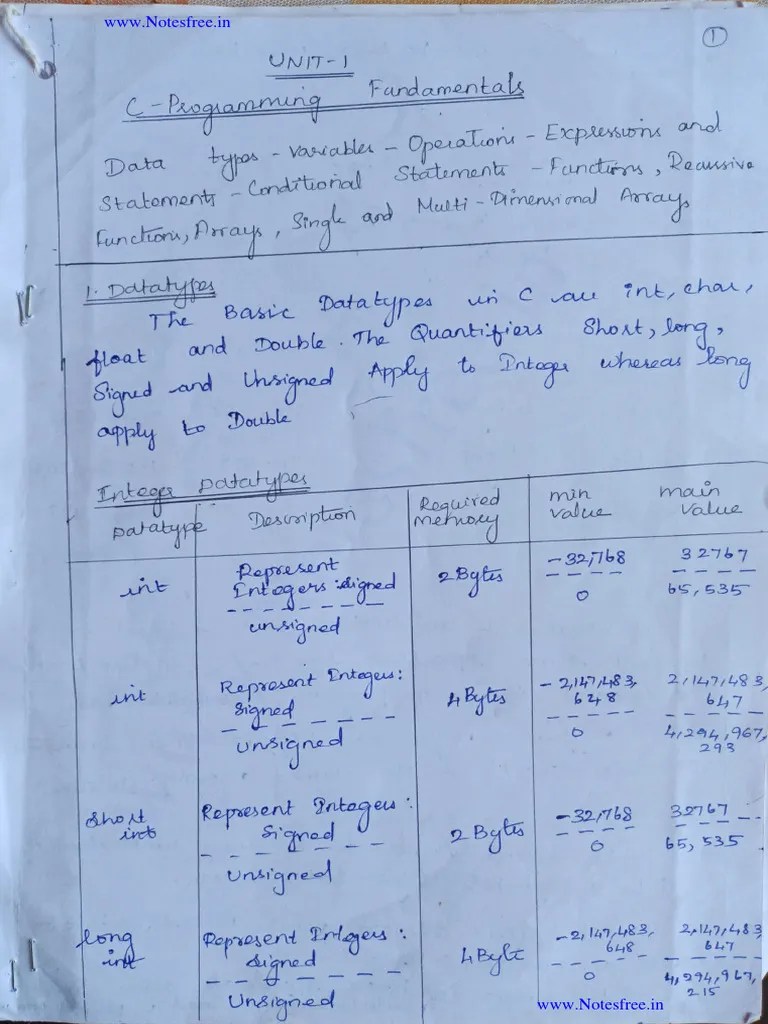 www.Notesfree.in
1
UNIT-1
C-Programming Fundamentals
Data types - Variables - Operations - Expressions and
Statements - Conditional Statements - Functions, Recursive
Functions, Arrays, Single and Multi-Dimensional Arrays
1. Datatypes
The Basic Datatypes in C are int, char,
float and Double. The Quantifiers Short, long,
Signed and Unsigned Apply to Integer whereas long
apply to Double
Integer Datatypes
Datatype Description Required Memory min value main value
int Represent Integers: signed 2 Bytes -32,768 32767
unsigned 0 65,535
int Represent Integers: signed 4 Bytes -2,147,483,648 2,147,483,647
Unsigned 0 4,294,967,293
short int Represent Integers: Signed 2 Bytes -32,768 32767
Unsigned 0 65,535
long int Represent Integers: signed 4 Byte -2,147,483,648 2,147,483,647
Unsigned 0 4,294,967,215
www.Notesfree.in